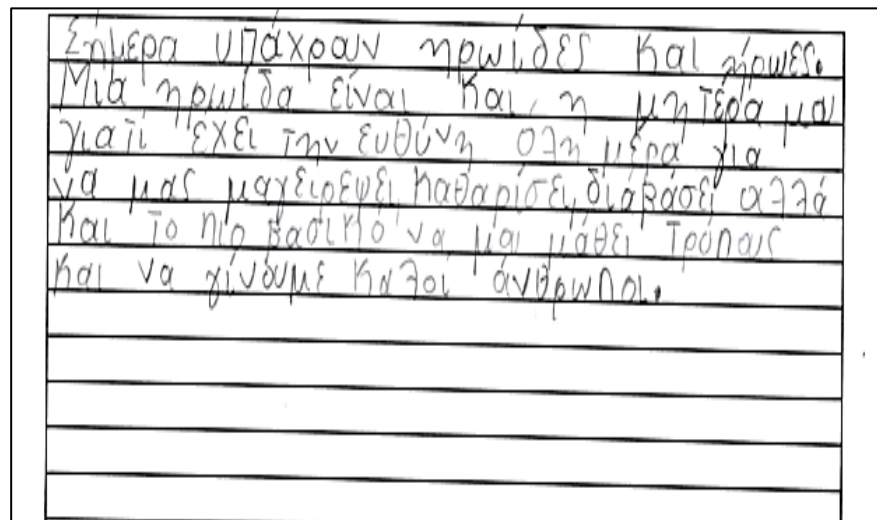 Σήμερα υπάχρουν ηρωίδες και ήρωες.
Μια ηρωίδα είναι και η μητέρα μου
γιατί έχει την ευθύνη όλη μέρα για
να μας μαγειρέψει, καθαρίσει, διαβάσει αλλά
και το πιο βασικό να μαι μάθει τρόπους
και να γίνουμε καλοί άνθρωποι.